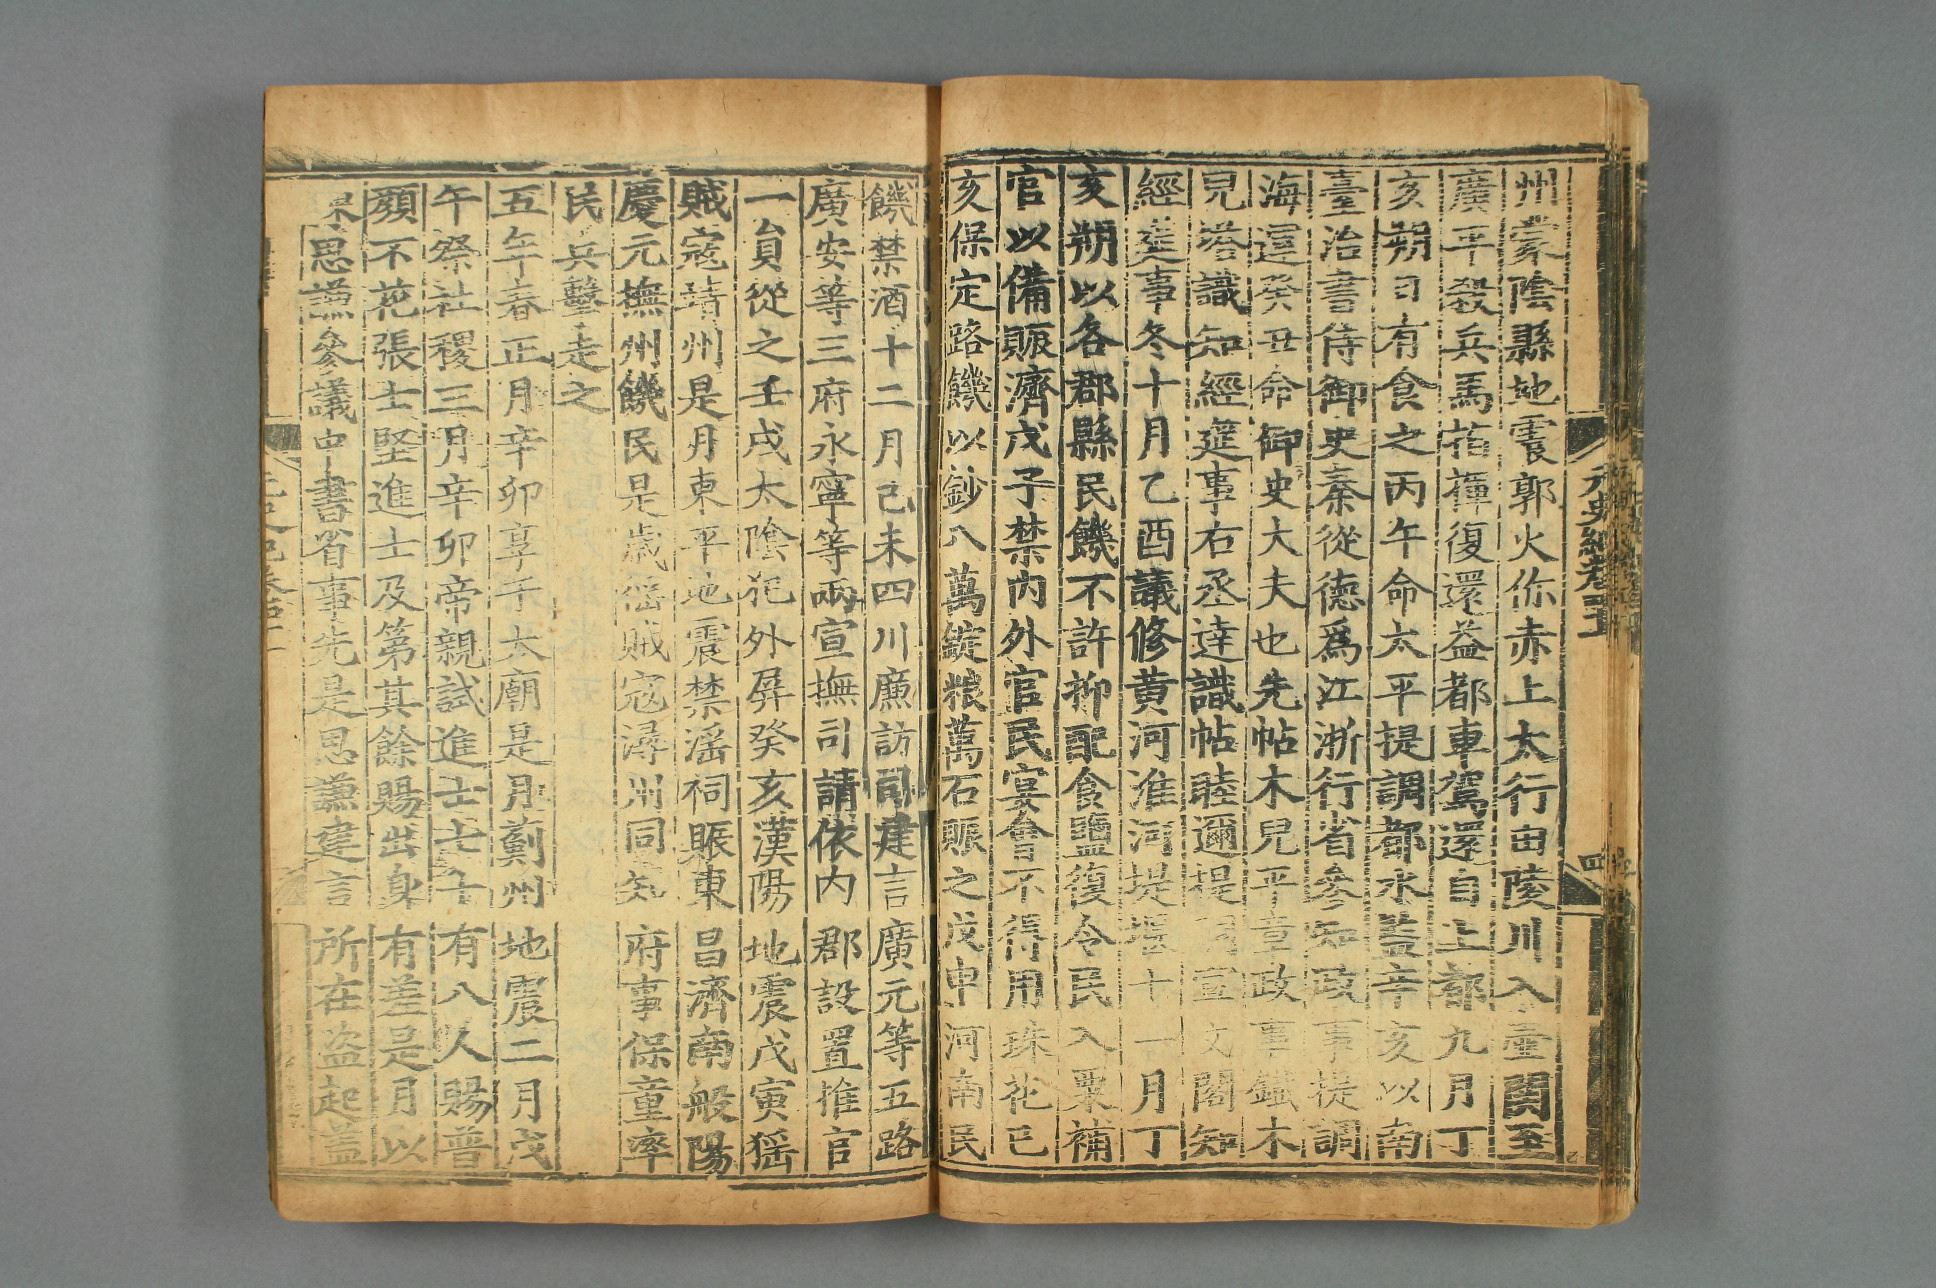 州蒙陰縣地震郭火你赤上太行由陵川入壺關至
廣平殺兵馬指揮復還益都車駕還自上都九月丁
亥朔日有食之丙午命太平提調都水監辛亥以南
臺治書侍御史秦從德爲江浙行省參知政事提調
海運癸丑命御史大夫也先帖木兒平章政事鐵木
兒塔識知經筵事右丞達識帖睦邇提調宣文閣知
經筵事冬十月乙酉議修黃河淮河堤堰十一月丁
亥朔以各郡縣民饑不許抑配食鹽復令民入粟補
官以備賑濟戊子禁內外官民宴會不得用珠花已
亥保定路饑以鈔八萬錠粮萬石賑之戊申河南民
饑禁酒十二月已未四川廉訪司建言廣元等五路
廣安等三府永寧等兩宣撫司請依內郡設置推官
一員從之壬戌太陰犯外屏癸亥漢陽地震戊寅猺
賊寇靖州是月東平地震禁淫祠賑東昌濟南般陽
慶元撫州饑民是歲猺賊寇潯州同知府事保童率
民兵擊走之
五年春正月辛卯享于太廟是月薊州地震二月戊
午祭社稷三月辛卯帝親試進士七十有八人賜普
顏不花張士堅進士及第其餘賜出身有差是月以
陳思謙參議中書省事先是思謙建言所在盜起蓋
元史紀卷四十一
四